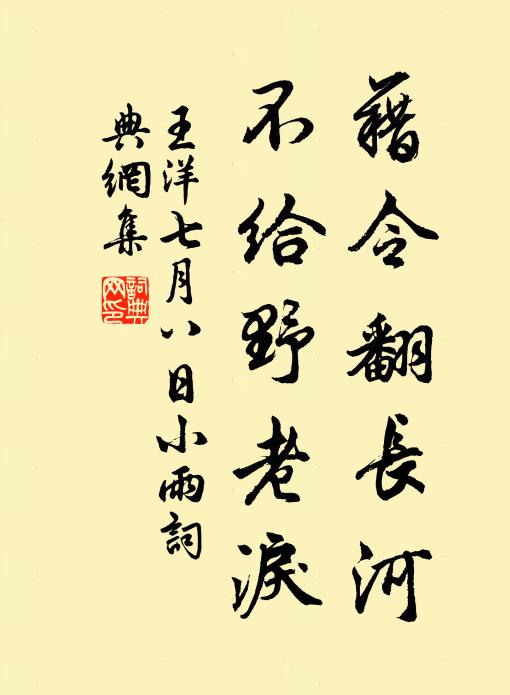 藉令翻長河
不給野老淚
王洋七月八日小雨詞
典網集
詞典
网印